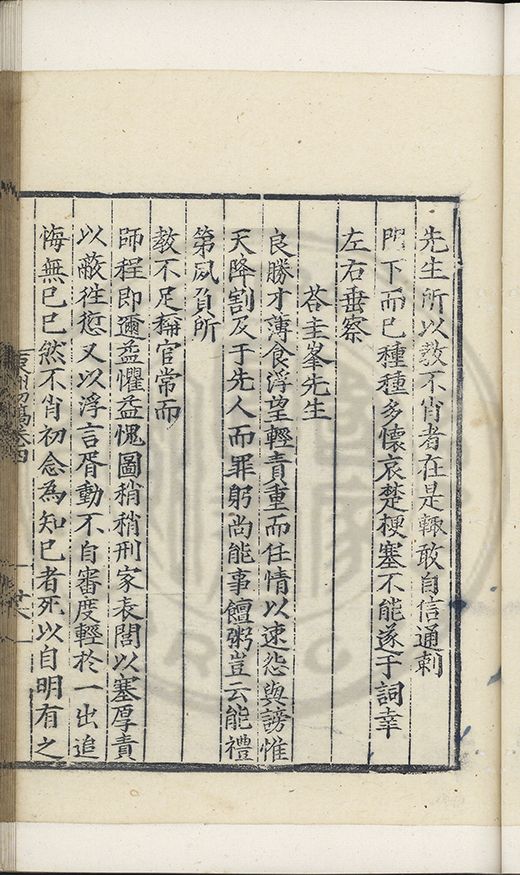 先生所以教不肖者在是輙敢自信通刺
門下而已種種多懷哀楚梗塞不能遂于詞幸
左右垂察
荅圭峯先生
良勝才薄食浮望輕責重而任情以速怨與謗惟
天降割及于先人而罪躬尚能事饘粥豈云能禮
第夙負所
教不足稱官常而
師程即邇益懼益愧圖稍稍刑家表閭以塞厚責
以敝徃愆又以浮言胥動不自審度輕於一出追
悔無已已然不肖初念為知己者死以自明有之
東洲初稿卷四